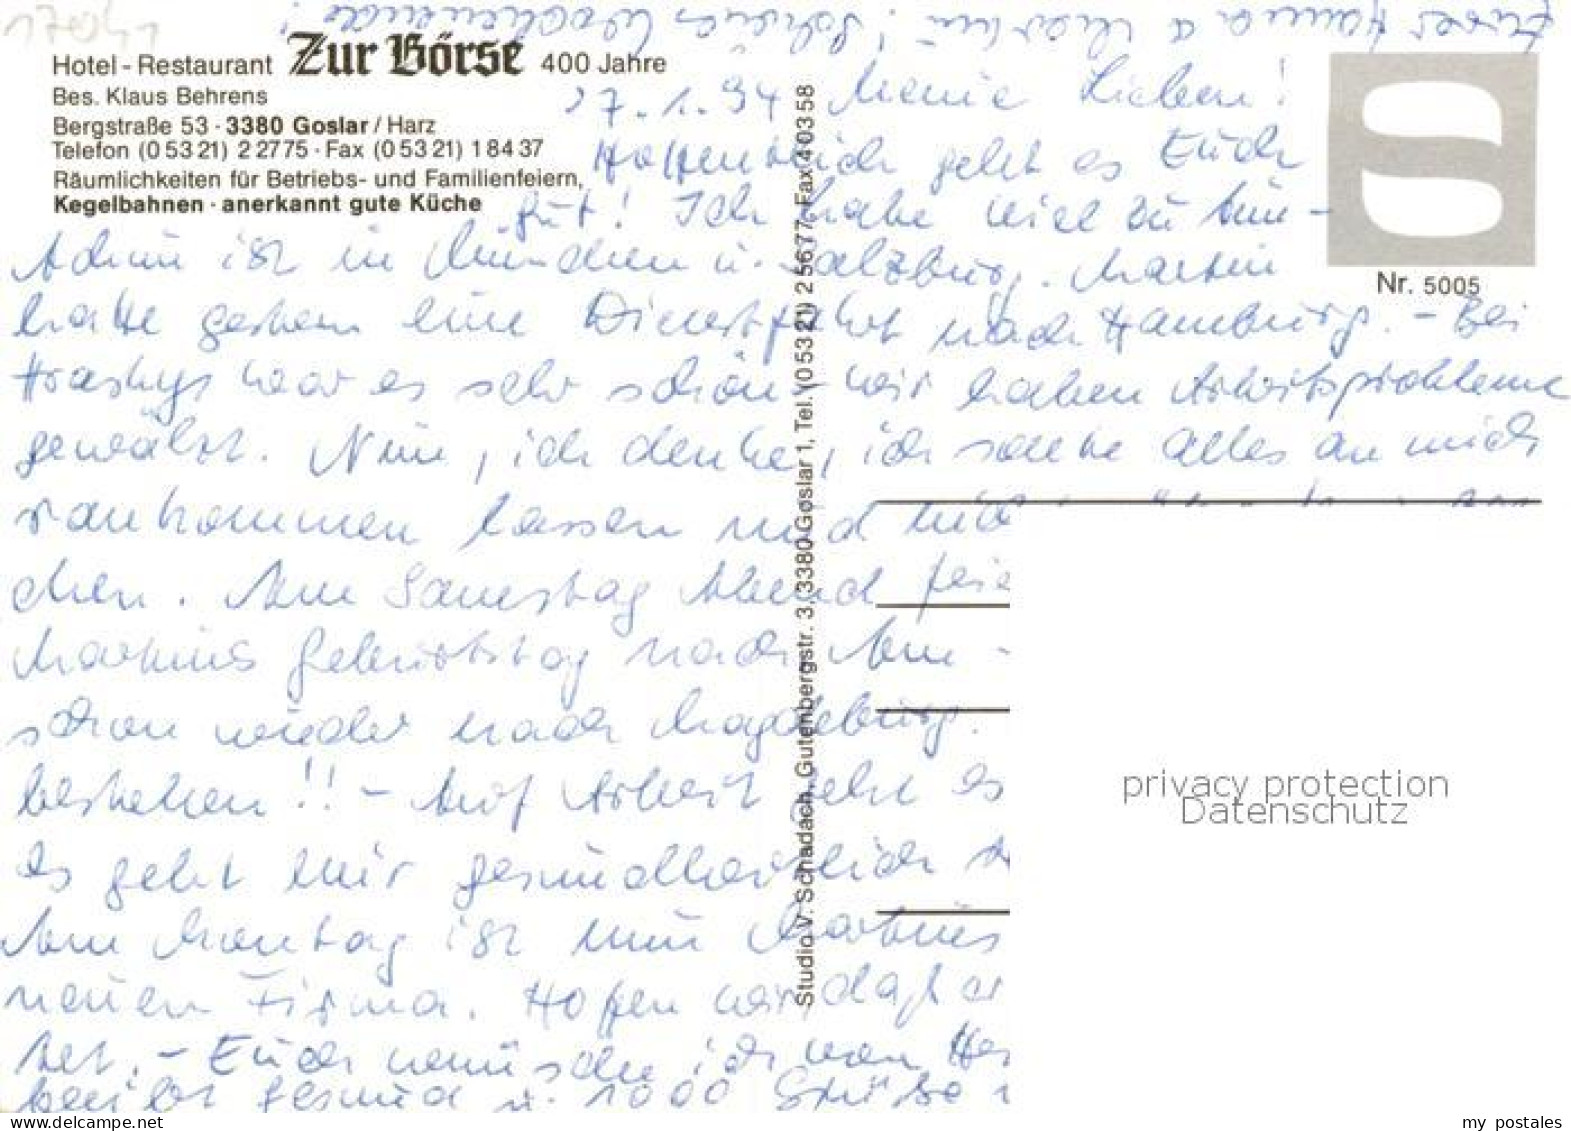 Eurer Hanna u Martin! Schönes Wochenende!
Hotel - Restaurant Zur Börse 400 Jahre
Bes. Klaus Behrens
Bergstraße 53 · 3380 Goslar / Harz
Telefon (0 53 21) 2 27 75 · Fax (0 53 21) 1 84 37
Räumlichkeiten für Betriebs- und Familienfeiern,
Kegelbahnen · anerkannt gute Küche
Nr. 5005
Studio V. Schadach, Gutenbergstr. 3, 3380 Goslar 1, Tel. (0 53 21) 2 56 77, Fax 4 03 58
27.1.94 Meine Lieben!
Hoffentlich geht es Euch
gut! Ich habe viel zu tun -
Achim ist in München u. Salzburg. Martin
hatte gestern eine Dienstfahrt nach Hamburg. - Bei
war es sehr schön - wir haben Arbeitsprobleme
gewälzt. Nun, ich denke, ich sollte alles an mich
rankommen lassen und
chen. Am Samstag Abend
Martins Geburtstag nach
schon wieder nach Magdeburg.
bestehen!! - Auf Arbeit geht es
Es geht mir gesundheitlich
Am Montag ist nun Martins
neuen Firma. Hoffen wir, daß er
tet. - Euch wünsche ich von
bleibt gesund u. 1000 Grüße
privacy protection
Datenschutz
delcampe.net
my_postales